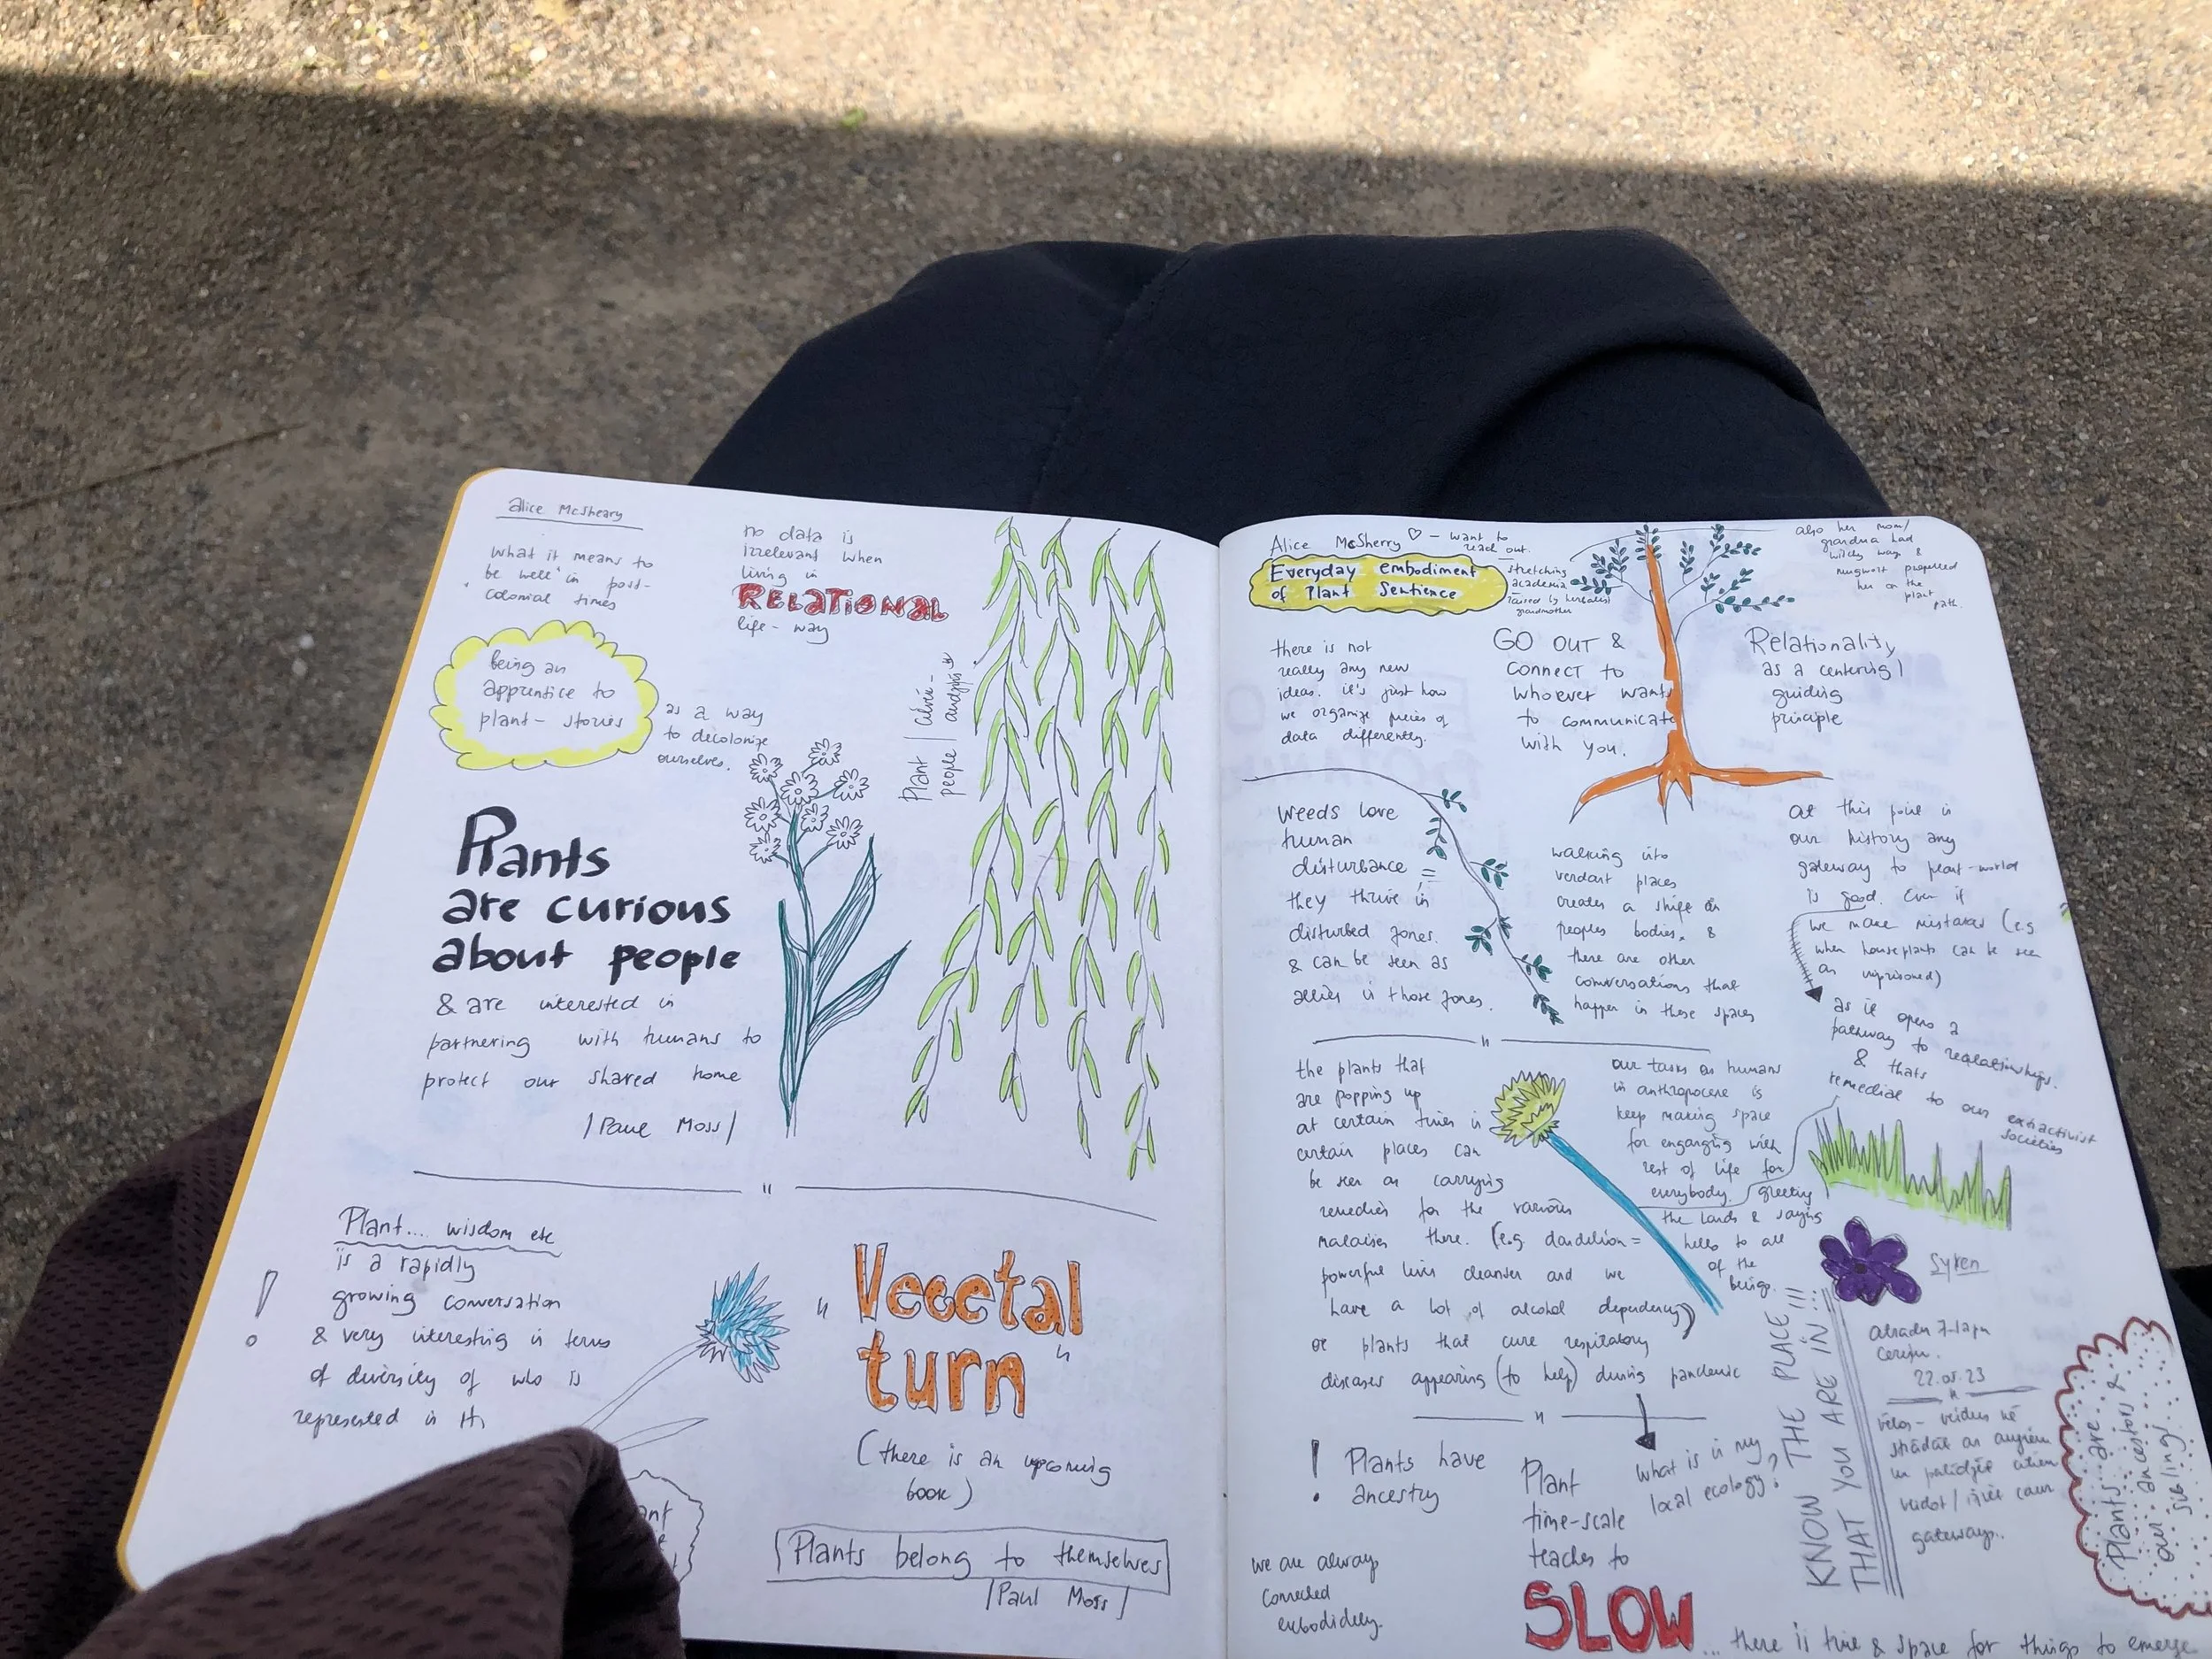 alice McSheary
what it means to
be well in post-
colonial times
no data is
irrelevant when
living in
RELATIONAL
life-way
being an
apprentice to
plant-stories
as a way
to decolonize
ourselves.
Plant
people
Plants
are curious
about people
& are interested in
partnering with humans to
protect our shared home
/Paul Moss/
Plant.... wisdom etc
is a rapidly
growing conversation
& very interesting in terms
of diversity of who is
represented in
!
"Vegetal
turn"
(there is an upcoming
book)
Plants belong to themselves
/Paul Moss/
Alice McSherry ♡ - want to
reach out.
Everyday embodiment
of Plant Sentience
stretching
academia
raised by herbalist
grandmother
also her mom/
grandma had
witchy ways &
mugwort prepared
her on the
plant
path.
there is not
really any new
ideas. it's just how
we organize pieces of
data differently.
GO OUT &
connect to
whoever wants
to communicate
with you.
Relationality
as a centering/
guiding
principle
Weeds love
human
disturbance =
they thrive in
disturbed zones.
& can be seen as
allies in those zones.
walking into
verdant places
creates a shift in
peoples bodies. &
there are other
conversations that
happen in these spaces
at this point in
our history any
gateway to plant-world
is good. Even if
we make mistakes (e.g
when houseplants can be seen
as imprisoned)
as it opens a
pathway to realationships.
& thats
remedial to our extractivist
societies
the plants that
are popping up
at certain times in
certain places can
be seen as carrying
remedies for the various
malaises there. (e.g. dandelion =
powerful liver cleanser and we
have a lot of alcohol dependency)
or plants that cure respitatory
diseases appearing (to help) during pandemic
our tasks as humans
in anthropocene is
keep making space
for enganging with
rest of life for
everybody. greeting
the lands & saying
hello to all
of the
beings.
! Plants have
ancestry
we are always
connected
embodidely.
Plant
time-scale
teaches to
SLOW
... there is time & space for things to emerge
what is in my
local ecology?
KNOW THE PLACE
THAT YOU ARE IN!!!
22.05.23
gateways..
Plants are
our ancestors &
our siblings!